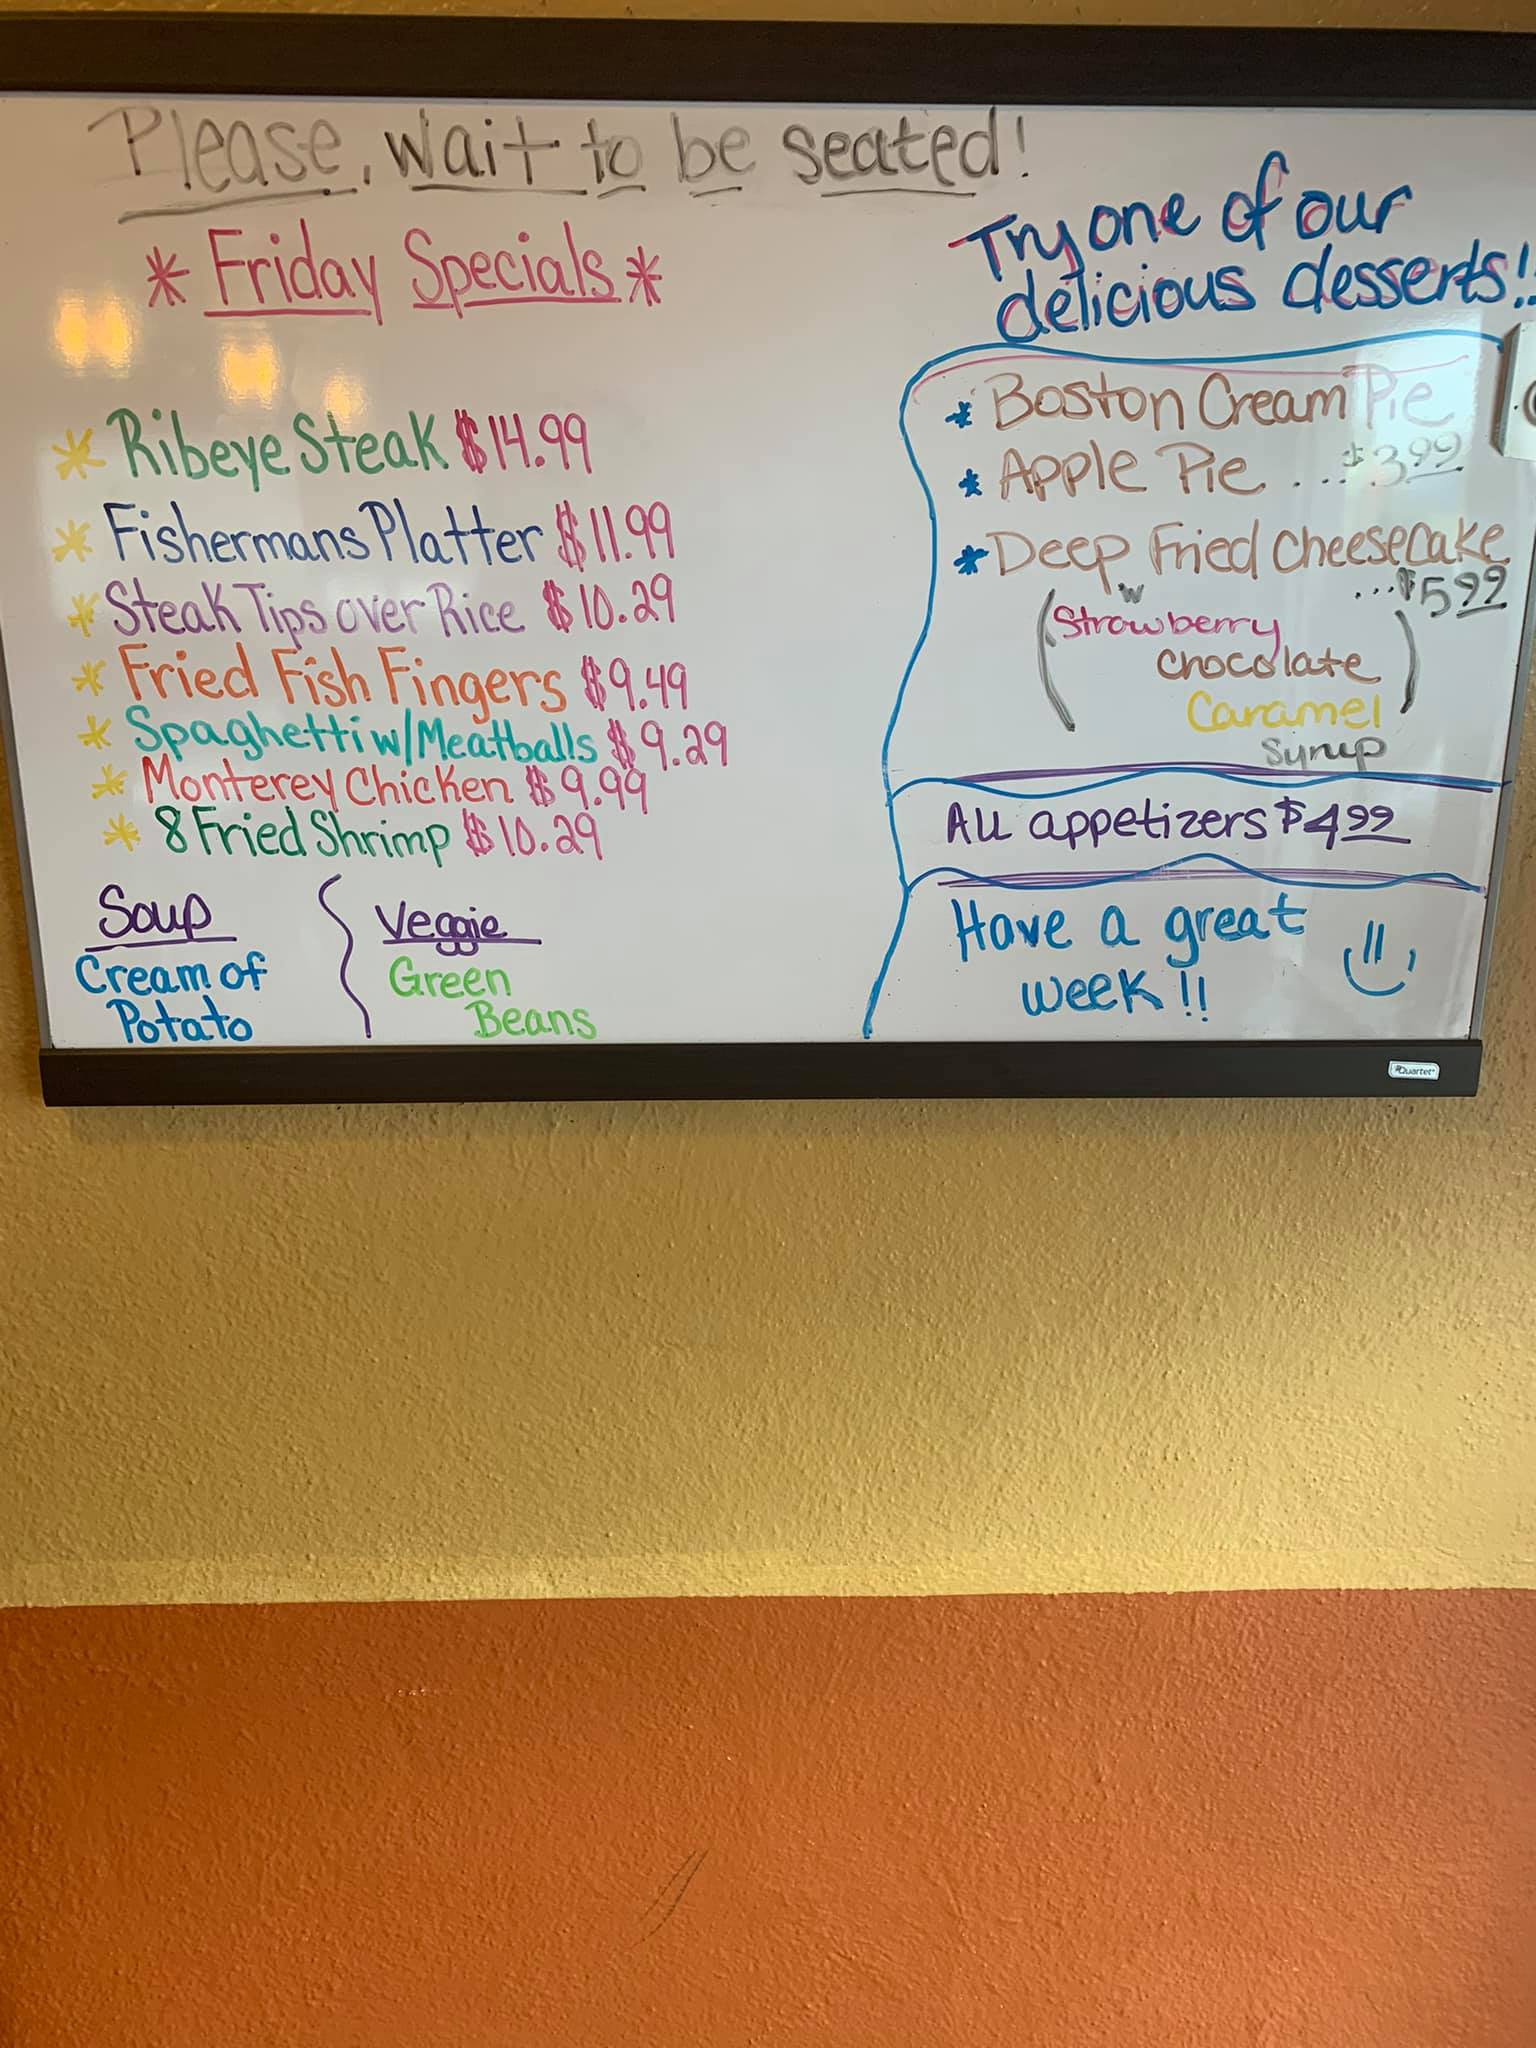 Please, wait to be seated!
* Friday Specials *
* Ribeye Steak $14.99
* Fishermans Platter $11.99
* Steak Tips over Rice $10.29
* Fried Fish Fingers $9.49
* Spaghetti w/Meatballs $9.29
* Monterey Chicken $9.99
* 8 Fried Shrimp $10.29
Soup
Cream of
Potato
Veggie
Green
Beans
Try one of our
delicious desserts!!
* Boston Cream Pie
* Apple Pie ...$3.99
* Deep Fried Cheesecake
...$5.99
(w
Strawberry
Chocolate
Caramel
Syrup)
All appetizers $4.99
Have a great
week!!
Quartet